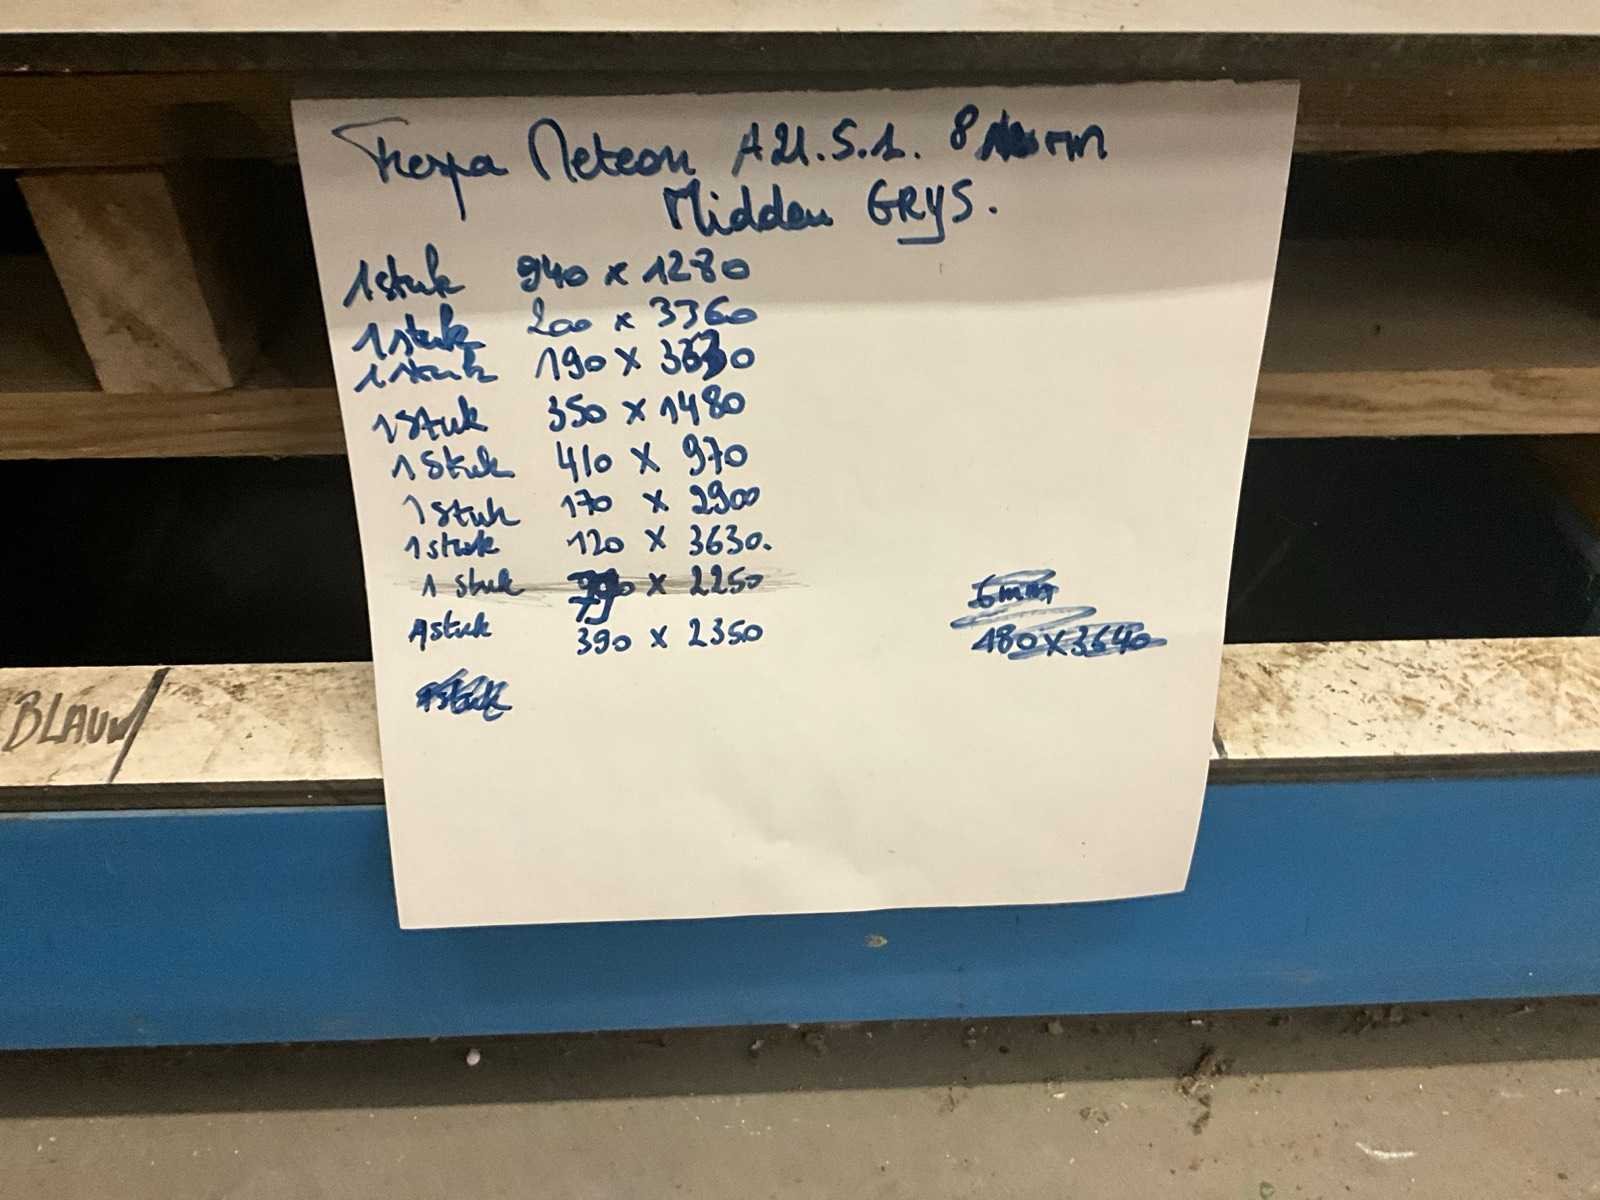 Trespa Meteon A21.5.1. 8 mm
Midden GRYS.
1 stuk 940 x 1280
1 stuk 200 x 3360
1 stuk 190 x
1 stuk 350 x 1480
1 stuk 410 x 970
1 stuk 170 x 2900
1 stuk 120 x 3630.
1 stuk x 2250
1 stuk 390 x 2350
6mm
480 x 3640
1 stuk
BLAUW